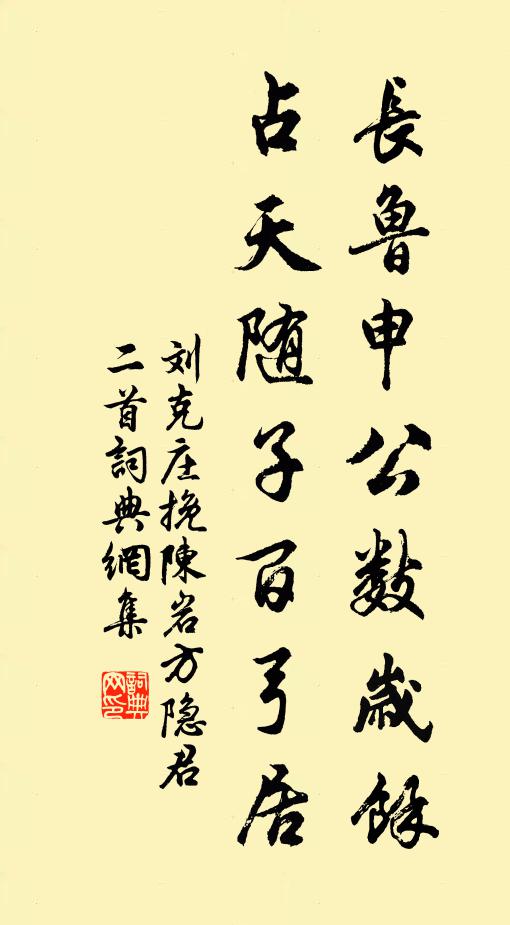 長魯申公數歲餘
占天随子百弓居
刘克庄挽陳岩方隐君
二首詞典網集
詞典网印